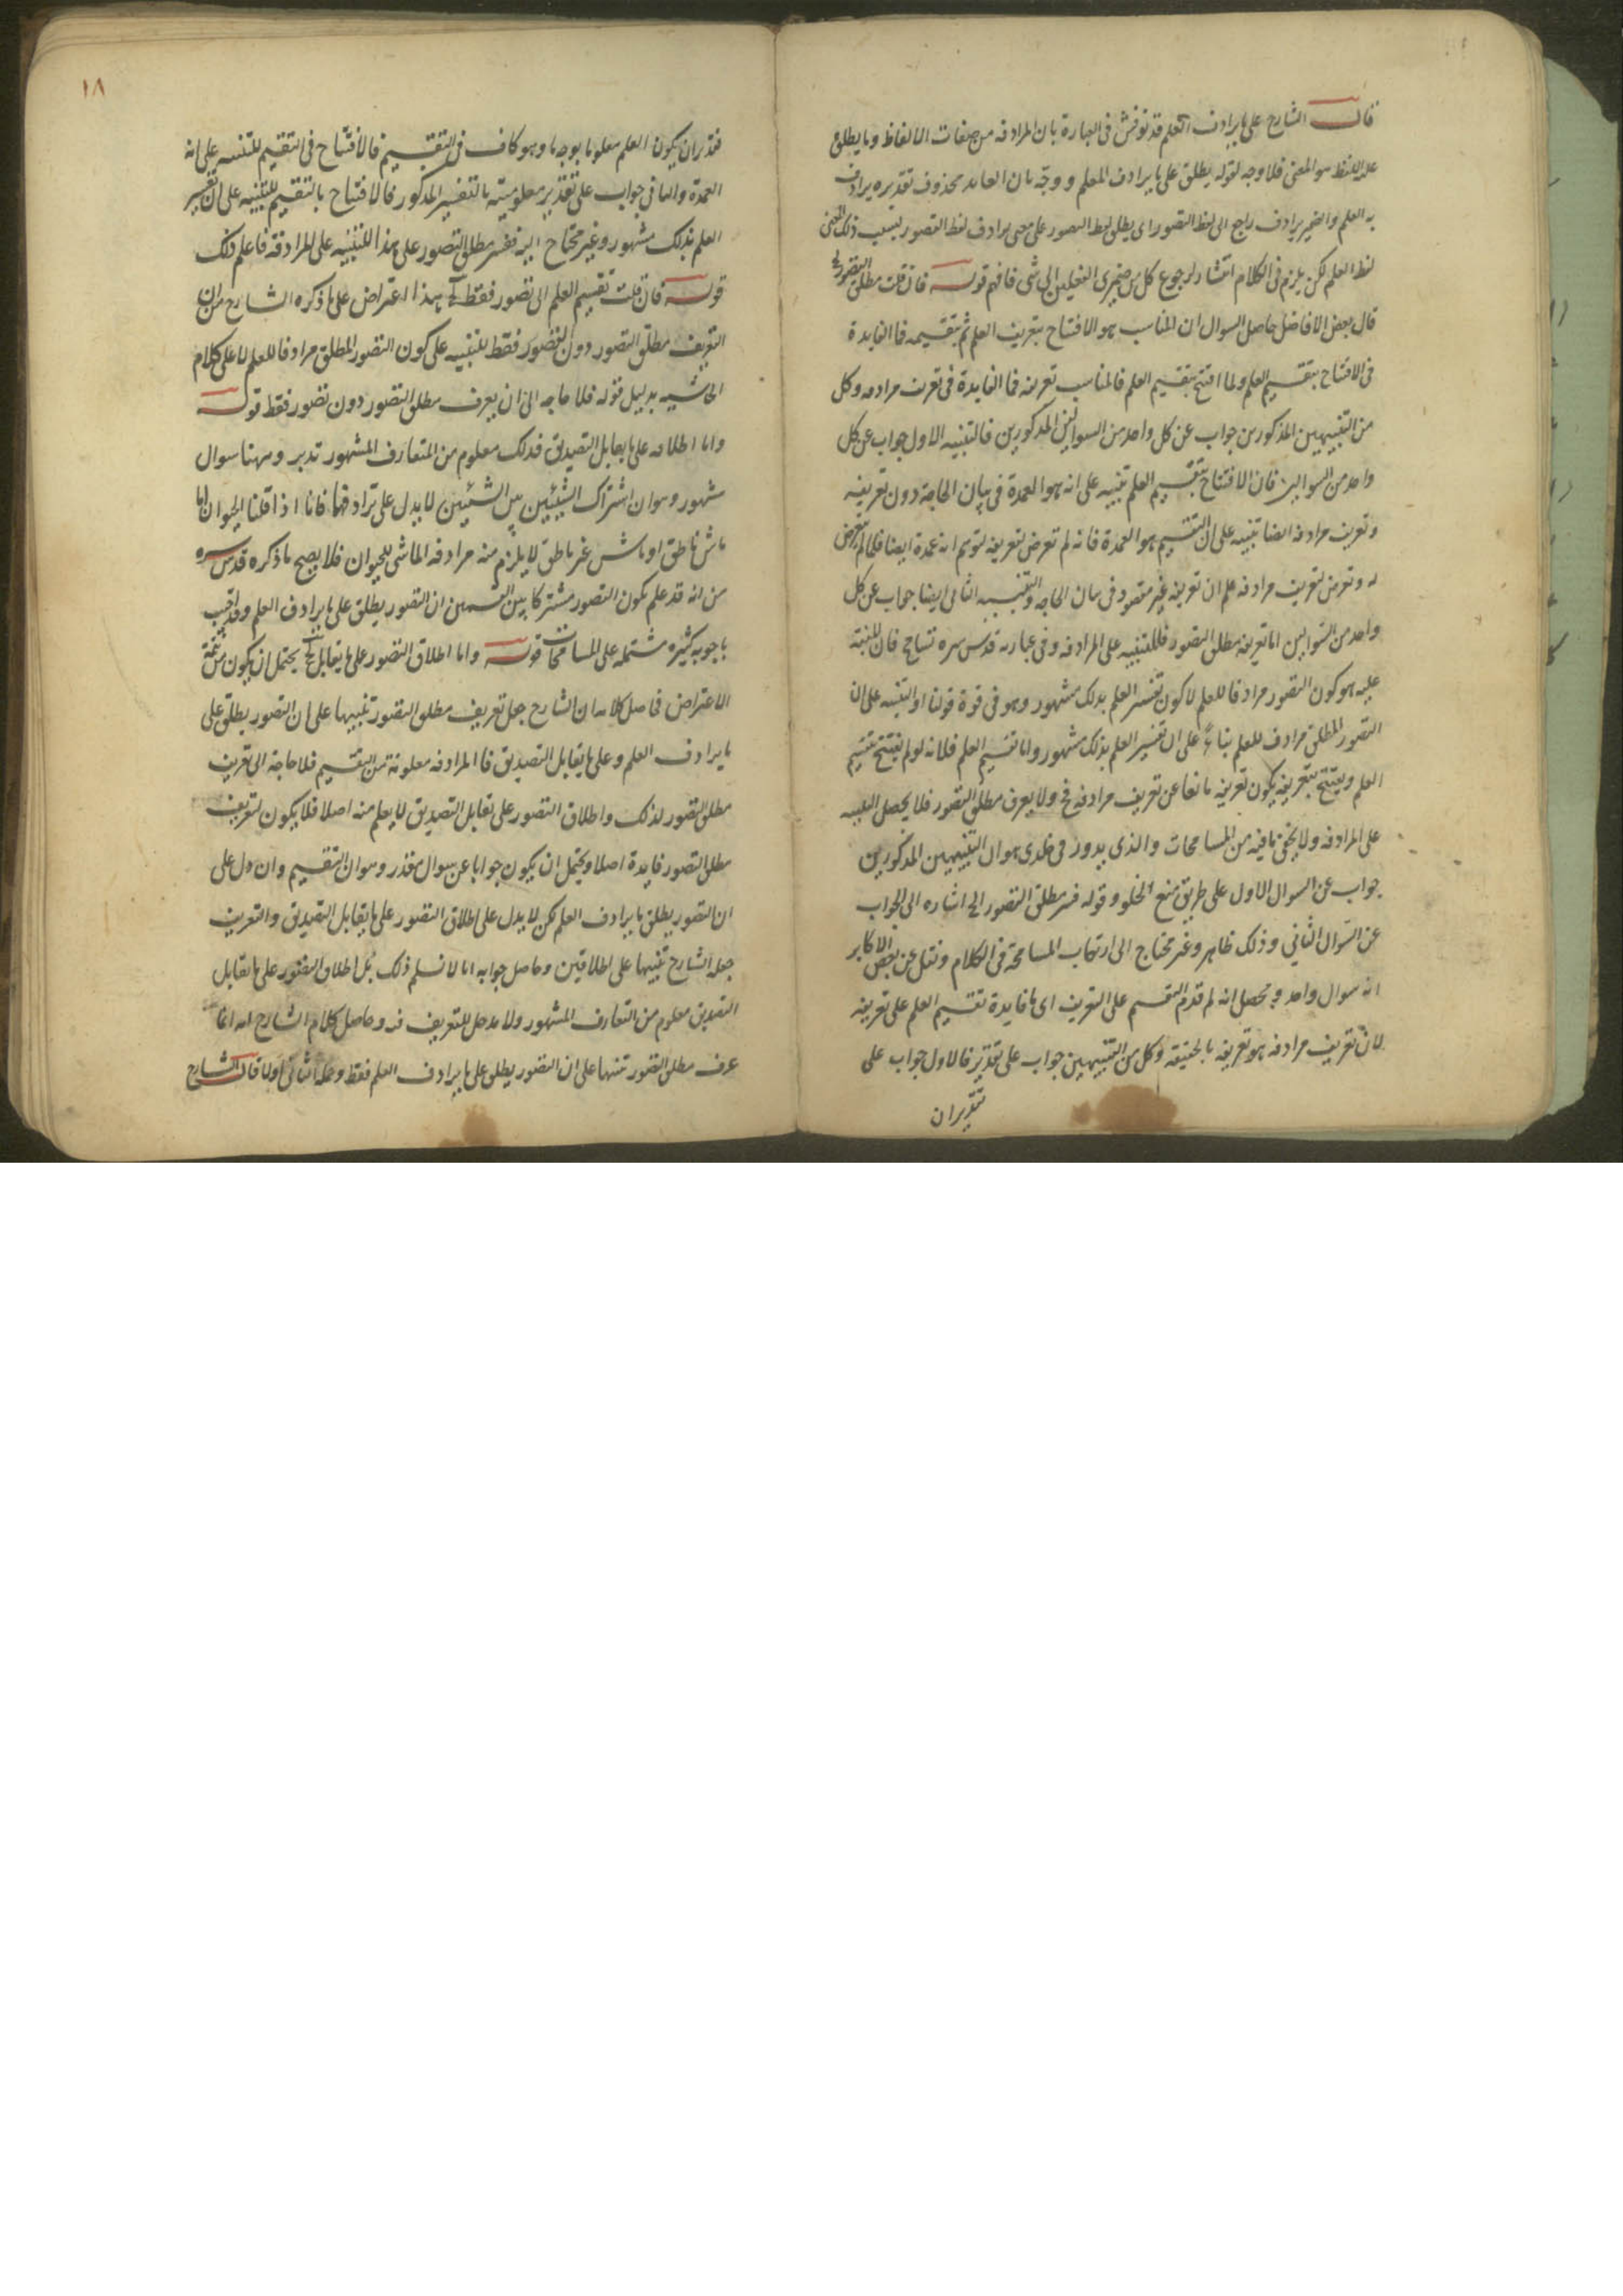 قال الشارح على ما يرادف العلم قد نوقش فى العبارة بان المرادفه من صفات الالفاظ وما يطلق
عليه اللفظ هو المعنى فلا وجه لقوله يطلق على ما يرادف العلم و وجّه بان العايد محذوف تقديره يرادف
به العلم والضمير يرادف راجع الى لفظ التصور اى يطلق لفظ التصور على معنى يرادف لفظ التصور بسبب ذلك المعنى
لفظ العلم لكن يلزم فى الكلام انتشار لرجوع كل من ضميرى الفعلين الى شى فافهم قوله فان قلت مطلق التصور الخ
قال بعض الافاضل حاصل السوال ان المناسب هو الافتتاح بتعريف العلم ثم بتقسيمه فما الفايدة
فى الافتتاح بتقسيم العلم ولما افتتح بتقسيم العلم فالمناسب تعريفه فما الفايدة فى تعريف مرادفه وكل
من التنبيهين المذكورين جواب عن كل واحد من السوالين المذكورين فالتنبيه الاول جواب عن كل
واحد من السوالين فان الافتتاح بتقسيم العلم تنبيه على انه هو العمدة فى بيان الحاجة دون تعريفه
وتعريف مرادفه ايضا تنبيه على ان التقسيم هو العمدة فانه لم تعرض لتعريفه لتوهم انه عمدة ايضا فلما لم يتعرض
له وتعرض لتعريف مرادفه علم ان تعريفه غير مقصود فى بيان الحاجه والتنبيه الثانى ايضا جواب عن كل
واحد من السوالين اما تعريفه مطلق التصور فللتنبيه على المرادفه وفى عبارته قدس سره تسامح فان المنبه
عليه هو كون التصور مرادفا للعلم لا كون تفسير العلم بذلك مشهور وهو فى قوة قولنا او التنبيه على ان
التصور المطلق مرادف للعلم بناء على ان تفسير العلم بذلك مشهور واما تقسيم العلم فلانه لو لم يفتتح بتقسيم
العلم ويفتتح بتعريفه يكون تعريفه مانعا عن تعريف مرادفه ولا يعرف مطلق التصور فلا يحصل التنبيه
على المرادفه ولا يخفى ما فيه من المسامحات والذى يدور فى خلدى هو ان التنبيهين المذكورين
جواب عن السوال الاول على طريق منع الخلو وقوله فسر مطلق التصور الخ اشاره الى الجواب
عن السوال الثانى وذلك ظاهر وغير محتاج الى ارتكاب المسامحة فى الكلام ونقل عن بعض الاكابر
انه سوال واحد ومحصل انه لم قدم التقسيم على التعريف اى ما فايدة تقسيم العلم على تعريفه
لان تعريف مرادفه هو تعريفه بالحقيقه وكل من التنبيهين جواب على تقدير فالاول جواب على
تقدير ان
١٨
تقدير ان يكون العلم معلوما بوجه ما وهو كاف فى التقسيم فالافتتاح فى التقسيم للتنبيه على انه
العمدة والثانى جواب على تقدير معلوميته بالتفسير المذكور فالافتتاح بالتقسيم للتنبيه على ان تفسير
العلم بذلك مشهور وغير محتاج اليه ففسر مطلق التصور على هذا للتنبيه على المرادفة فاعلم ذلك
قوله فان قلت تقسيم العلم الى تصور فقط الخ هذا اعتراض على ما ذكره الشارح من ان
التعريف مطلق التصور دون التصور فقط للتنبيه على كون التصور المطلق مرادفا للعلم لا على كلام
الحاشيه بدليل قوله فلا حاجه الى ان يعرف مطلق التصور دون تصور فقط قوله
واما اطلاقه على ما يقابل التصديق فذلك معلوم من المتعارف المشهور تدبر وههنا سوال
مشهور وهو ان اشتراك الشيئين بين الشيئين لا يدل على ترادفهما فانا اذا قلنا الحيوان اما
ماش ناطق او ماش غير ناطق لا يلزم منه مرادفه الماشى للحيوان فلا يصح ما ذكره قدس سره
من انه قد علم بكون التصور مشتركا بين القسمين ان التصور يطلق على ما يرادف العلم وقد اجيب
باجوبه كثيره مشتمله على المسامحات قوله واما اطلاق التصور على ما يقابل الخ يحتمل ان يكون من تتمة
الاعتراض فحاصل كلامه ان الشارح جعل تعريف مطلق التصور تنبيها على ان التصور يطلق على
ما يرادف العلم وعلى ما يقابل التصديق فالمرادفه معلومة من التقسيم فلا حاجة الى تعريف
مطلق التصور لذلك واطلاق التصور على ما يقابل التصديق لا يعلم منه اصلا فلا يكون لتعريف
مطلق التصور فايدة اصلا ويحتمل ان يكون جوابا عن سوال مقدر وهو ان التقسيم وان دل على
ان التصور يطلق ما يرادف العلم لكن لا يدل على اطلاق التصور على ما يقابل التصديق والتعريف
جعله الشارح تنبيها على اطلاقين وحاصل جوابه انا لا نسلم ذلك بل اطلاق التصور على ما يقابل
التصديق معلوم من التعارف المشهور ولا مدخل للتعريف فيه وحاصل كلام الشارح انه انما
عرف مطلق التصور تنبيها على ان التصور يطلق على ما يرادف العلم فقط وعلم الثانى اولا قال الشارح